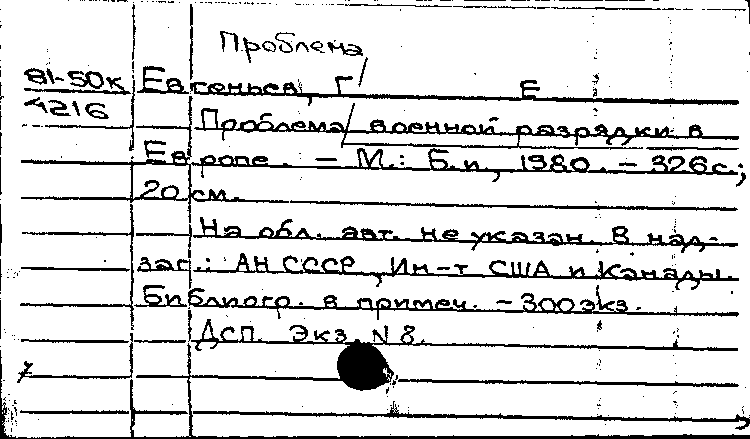 Проблема
81-50к Евгеньева, Г Е
4216 Проблема военной разрядки в
Европе. – М.: Б.и, 1980. – 326с.;
20 см.
На обл. авт. не указан. В над-
заг.: АН СССР, Ин-т США и Канады.
Библиогр. в примеч. – 300экз.
Дсп. Экз. N 8.